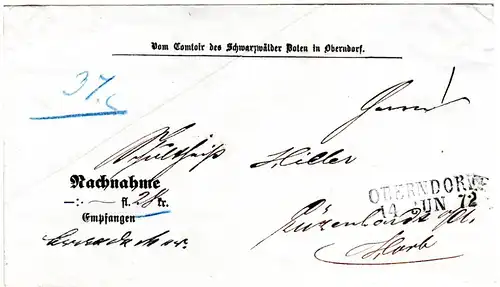 Vom Comtoir des Schwarzwälder Boten in Oberndorf.
37.
Herrn
Schultheiß Hiller
Nachnahme
—:— fl. 28 kr.
Empfangen
OBERNDORF
14 JUN 72
Horb